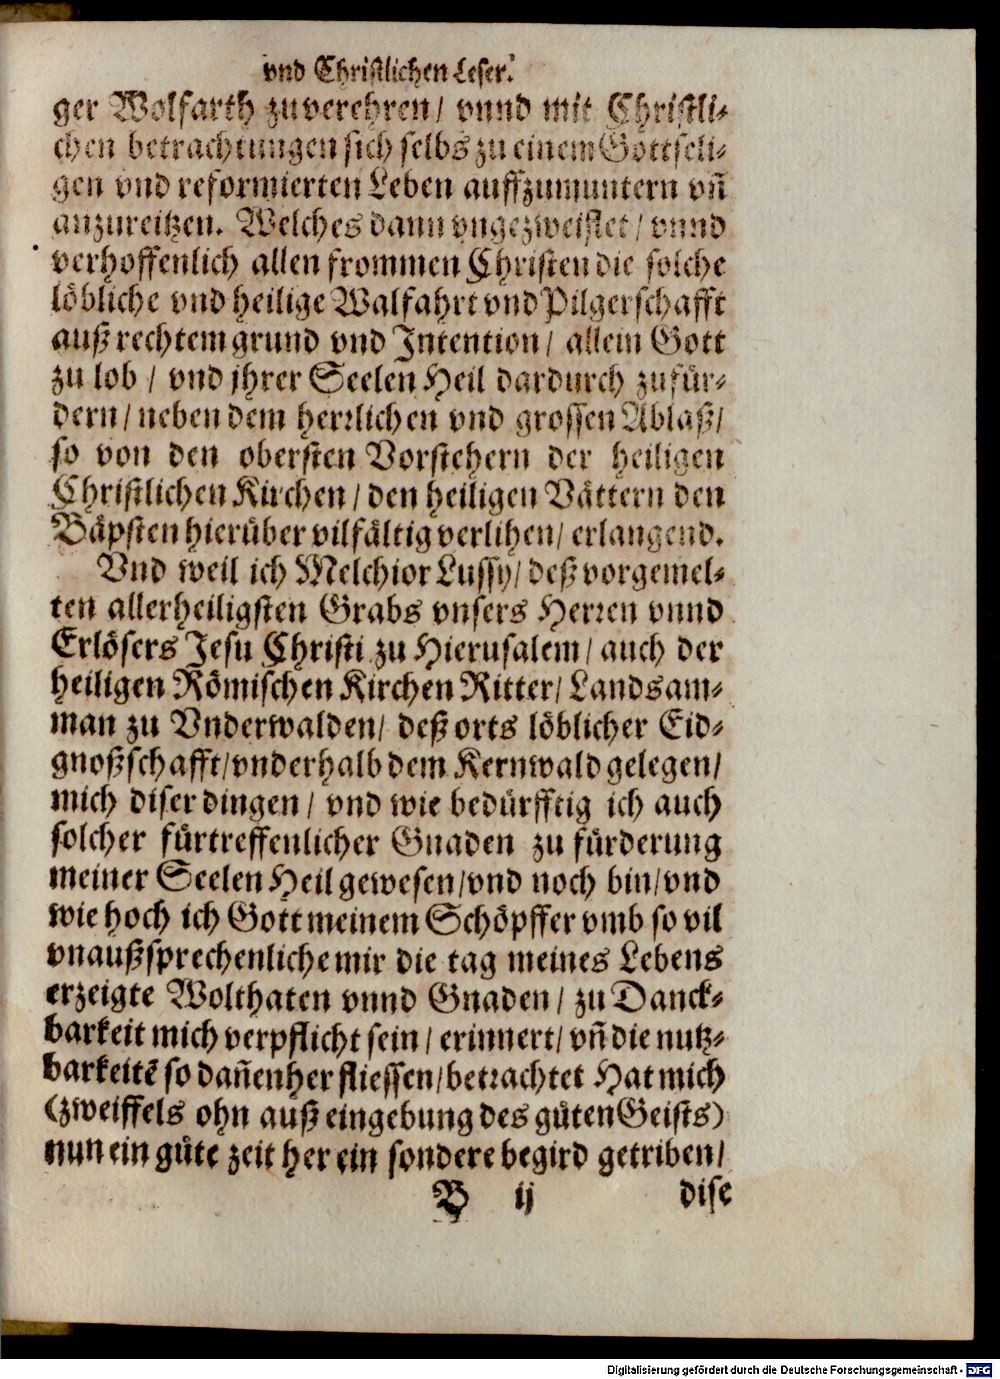 vnd Christlichen Leser.
ger Wolfarth zuverehren/ vnnd mit Christli-
chen betrachtungen sich selbs zu einem Gottseli-
gen vnd reformierten Leben auffzumuntern vn̄
anzureitzen. Welches dann vngezweiflet/ vnnd
verhoffenlich allen frommen Christen die solche
löbliche vnd heilige Walfahrt vnd Pilgerschafft
auß rechtem grund vnd Intention/ allein Gott
zu lob / vnd jhrer Seelen Heil dardurch zufür-
dern/ neben dem herrlichen vnd grossen Ablaß/
so von den obersten Vorstehern der heiligen
Christlichen Kirchen/ den heiligen Vättern den
Bäpsten hierüber vilfältig verlihen/ erlangend.
Vnd weil ich Melchior Lussy/ deß vorgemel-
ten allerheiligsten Grabs vnsers Herren vnnd
Erlösers Jesu Christi zu Hierusalem/ auch der
heiligen Römischen Kirchen Ritter/ Landsam-
man zu Vnderwalden/ deß orts löblicher Eid-
gnoßschafft/ vnderhalb dem Kernwald gelegen/
mich diser dingen/ vnd wie bedürfftig ich auch
solcher fürtreffenlicher Gnaden zu fürderung
meiner Seelen Heil gewesen/ vnd noch bin/ vnd
wie hoch ich Gott meinem Schöpffer vmb so vil
vnaußsprechenliche mir die tag meines Lebens
erzeigte Wolthaten vnnd Gnaden/ zu Danck-
barkeit mich verpflicht sein/ erinnert/ vn̄ die nutz-
barkeitē so dan̄enher fliessen/ betrachtet Hat mich
(zweiffels ohn auß eingebung des guͤten Geists)
nun ein guͤte zeit her ein sondere begird getriben/
B ij dise
Digitalisierung gefördert durch die Deutsche Forschungsgemeinschaft - DFG